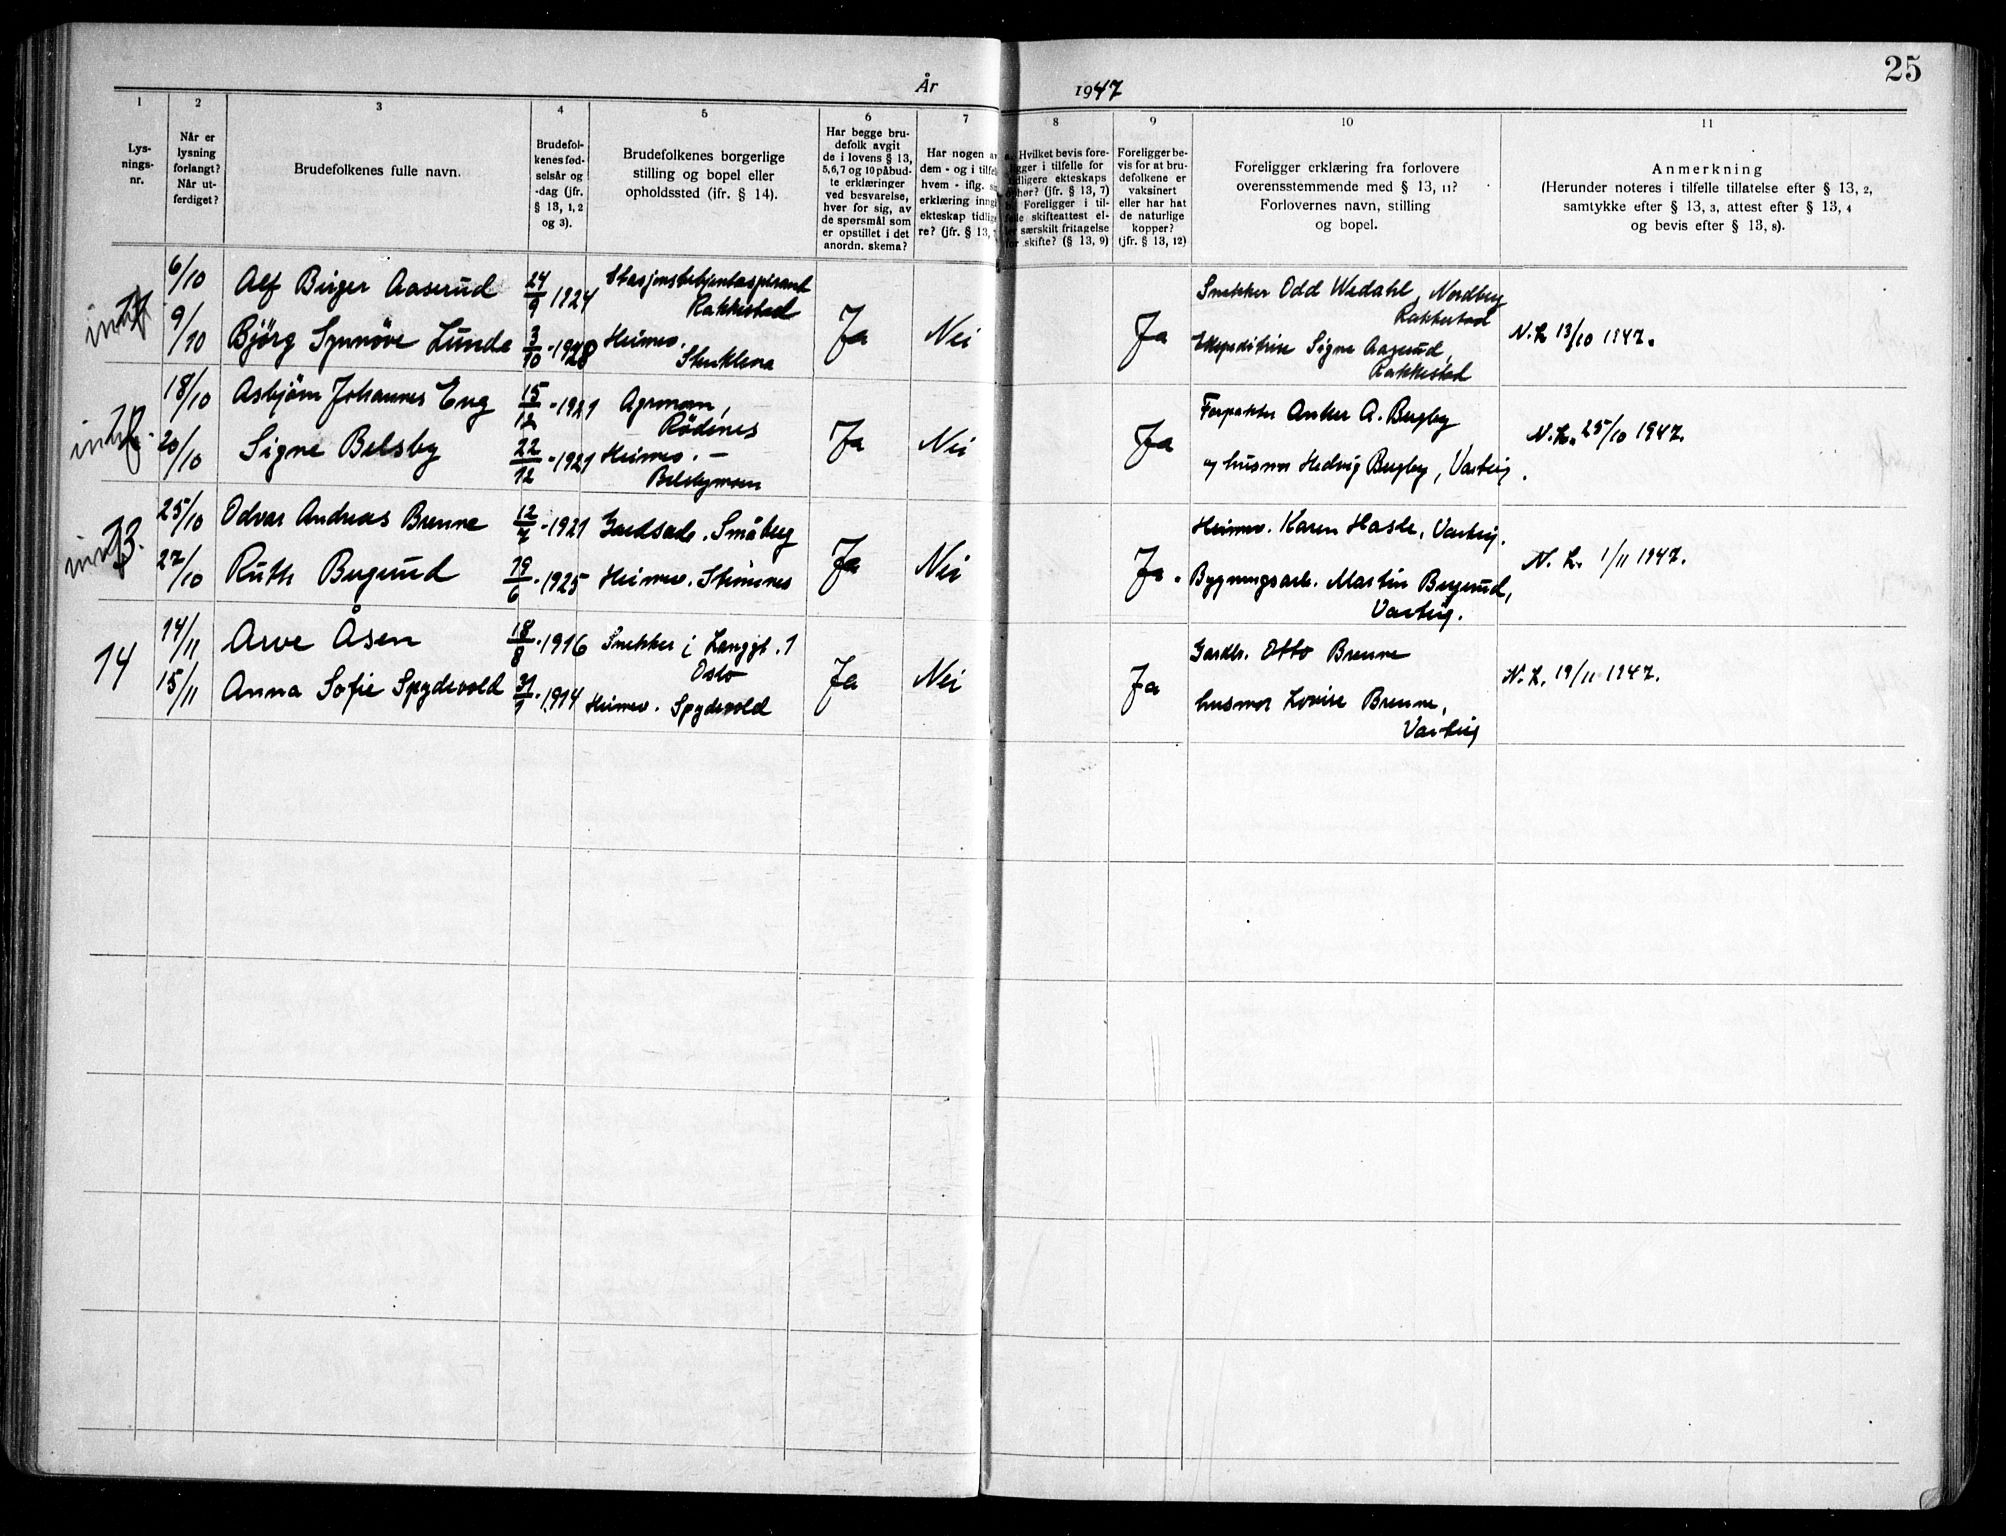 25
År 1947
1 2 3 4 5 6 7 8 9 10 11
Lys-
nings-
nr.
Når er
lysning
forlangt?
Når ut-
ferdiget?
Brudefolkenes fulle navn.
Brudefol-
kenes fød-
selsår og
-dag (jfr.
§ 13, 1, 2
og 3).
Brudefolkenes borgerlige
stilling og bopel eller
opholdssted (jfr. § 14).
Har begge bru-
defolk avgit
de i lovens § 13,
5,6,7 og 10 påbud-
te erklæringer
ved besvarelse,
hver for sig, av
de spørsmål som
er opstillet i det
anordn. skema?
Har nogen a
dem - og i tilf
hvem - iflg. s
erklæring inng
ekteskap tidlig
re? (jfr. § 13,
a. Hvilket bevis fore-
ligger i tilfelle for
tidligere ekteskaps
ophør? (jfr. § 13, 7)
b. Foreligger i til-
felle skifteattest el-
ler særskilt fritagelse
for skifte? (§ 13, 9)
Foreligger be-
vis for at bru-
defolkene er
vaksinert
eller har hat
de naturlige
kopper?
(jfr. § 13, 12)
Foreligger erklæring fra forlovere
overensstemmende med § 13, 11?
Forlovernes navn, stilling
og bopel.
Anmerkning
(Herunder noteres i tilfelle tillatelse efter § 13, 2,
samtykke efter § 13, 3, attest efter § 13, 4
og bevis efter § 13, 8).
6/10 Alf Birger Aaserud 24/9 1924 Stasjonsbetjentaspirant
Rakkestad
9/10 Bjørg Synnøve Lunde 3/10 - 1928 Heimev.
Ja Nei Ja
Snekker Odd Wedahl, Nordby
Rakkestad
Ekspeditrise Signe Aaserud,
Rakkestad
N.L. 13/10 1947.
18/10 Asbjørn Johannes Eng 15/12 - 1921 Agronom,
Rødenes
20/10 Signe Belsby 22/12 - 1921 Heimev. -
Belsbymoen
Ja Nei Ja
Forpakter Anker A. Bergby
og husmor Hedvig Bergby, Varteig.
N.L. 25/10 1947.
13.
25/10 Odvar Andreas Brenne 12/7 - 1921 Gardsarb. Småberg
27/10 Ruth Bergerud 19/6 - 1925 Heimev.
Ja Nei Ja.
Heimev. Karen Hasle, Varteig.
Bygningsarb. Martin Bergerud,
Varteig.
N.L. 1/11 1947.
14
14/11 Arve Åsen 18/8 - 1916 Snekker i Langgt. 1
Oslo
15/11 Anna Sofie Spydevold 31/1 - 1914 Heimev. Spydevold
Ja Nei Ja
Gardbr. Otto Brenne
husmor Lovise Brenne,
Varteig
N.L. 19/11 1947.